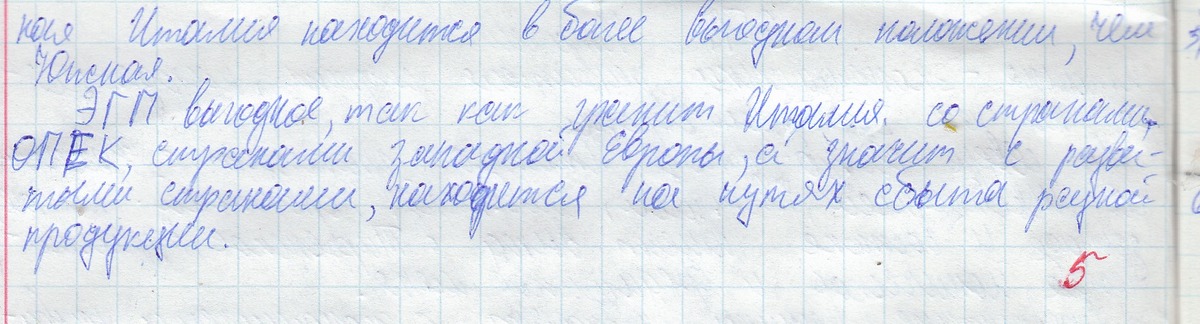 ная Италия находится в более выгодном положении, чем
Южная.
ЭГП выгодное, так как гранит Италия. со странами
ОПЕК, странами западной Европы, а значит с разви-
тыми странами, находится на путях сбыта разной
продукции.
5